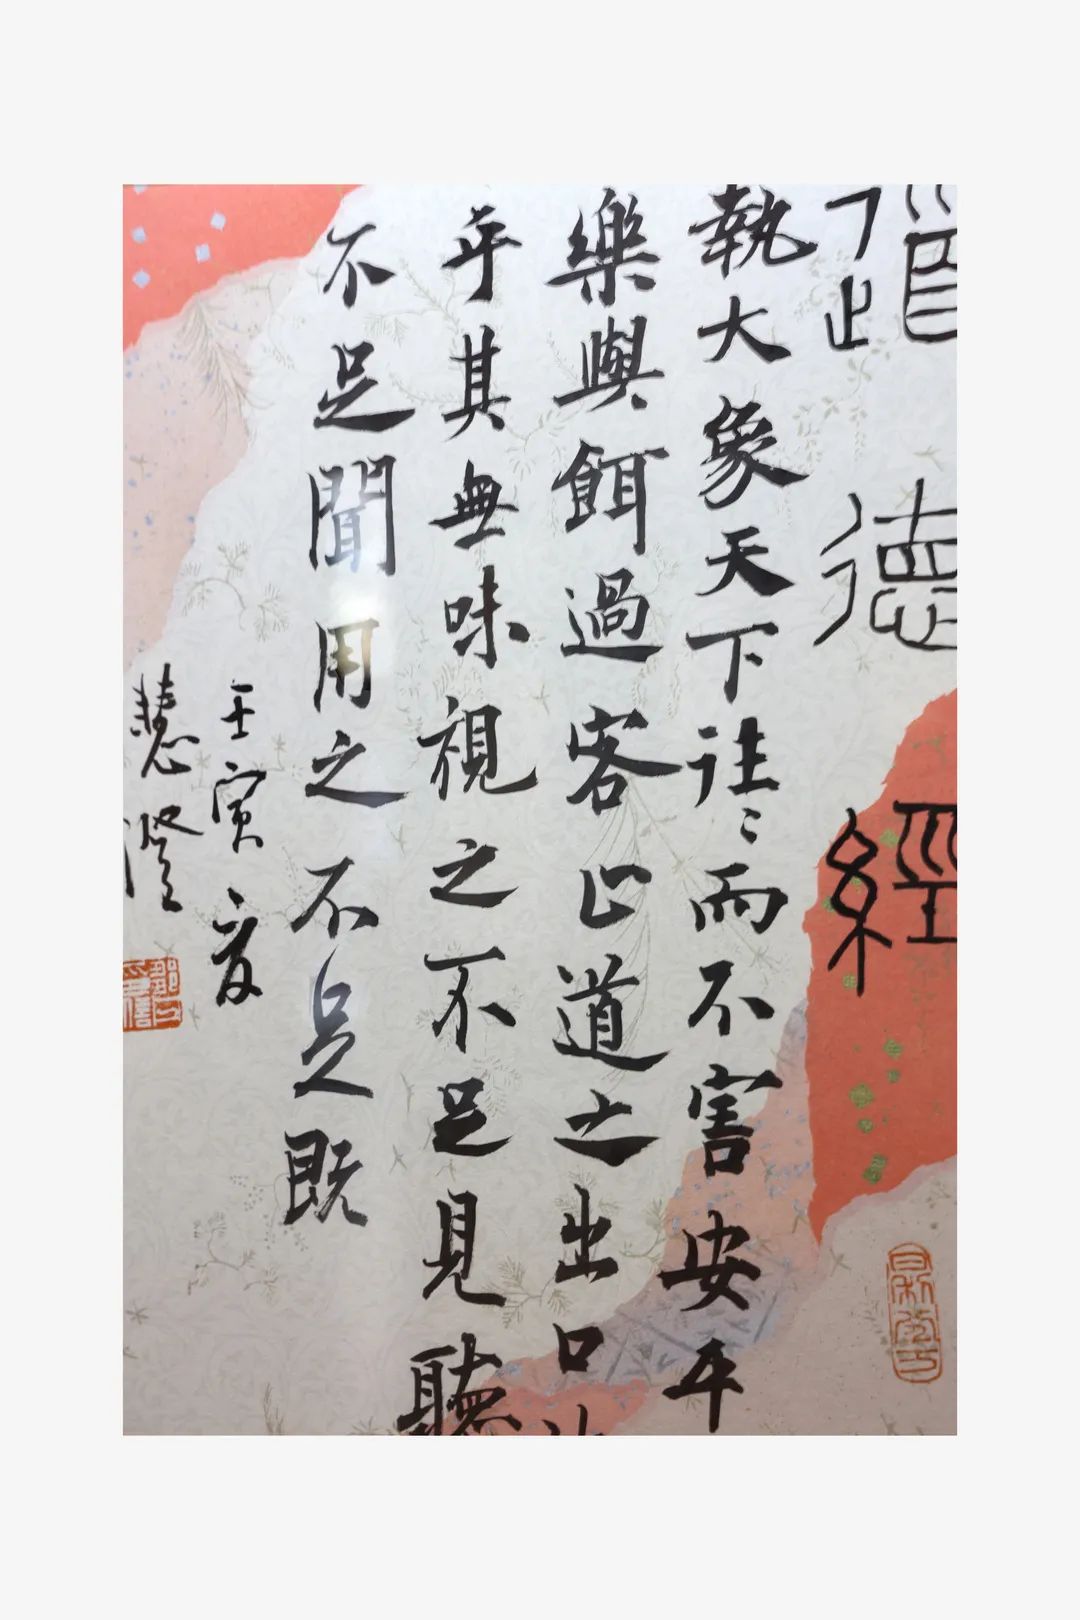 道德經
執大象天下往〻而不害安平
樂與餌過客止道之出口
乎其無味視之不足見聽
不足聞用之不足既
壬寅夏
慧澄